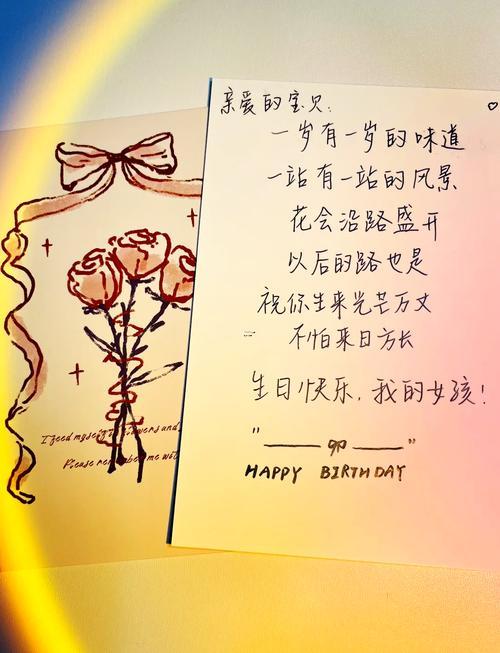 亲爱的宝贝:
一岁有一岁的味道
一站有一站的风景
花会沿路盛开
以后的路也是
祝你生来光芒万丈
不怕来日方长
生日快乐,我的女孩!
HAPPY BIRTHDAY
I feed myself flowers and
Please remember me